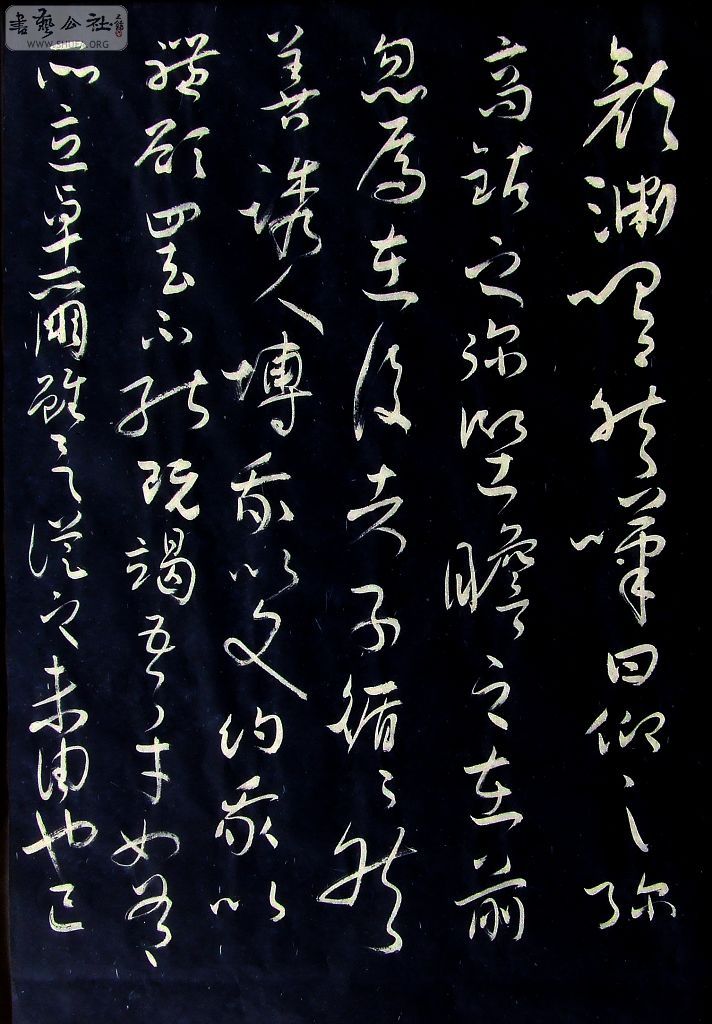 書藝公社
WWW.SHUFA.ORG
顏淵喟然嘆曰仰之彌
高鑽之彌堅瞻之在前
忽焉在後夫子循〻然
善誘人博我以文約我以
禮欲罷不能既竭吾才如有
所立卓爾雖欲從之末由也已